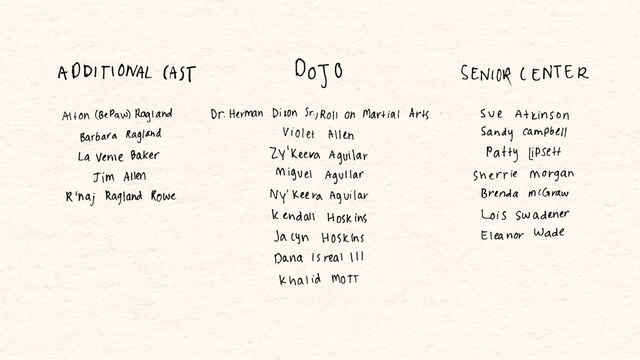 ADDITIONAL CAST
Alton (BePaw) Ragland
Barbara Ragland
La Verne Baker
Jim Allen
R'naj Ragland Rowe
DOJO
Dr. Herman Dixon Sr., Roll on Martial Arts
Violet Allen
Zy'Keera Aguilar
Miguel Aguilar
Ny'Keera Aguilar
Kendall Hoskins
Jacyn Hoskins
Dana Isreal III
Khalid Mott
SENIOR CENTER
Sue Atkinson
Sandy Campbell
Patty Lipsett
Sherrie Morgan
Brenda McGraw
Lois Swadener
Eleanor Wade